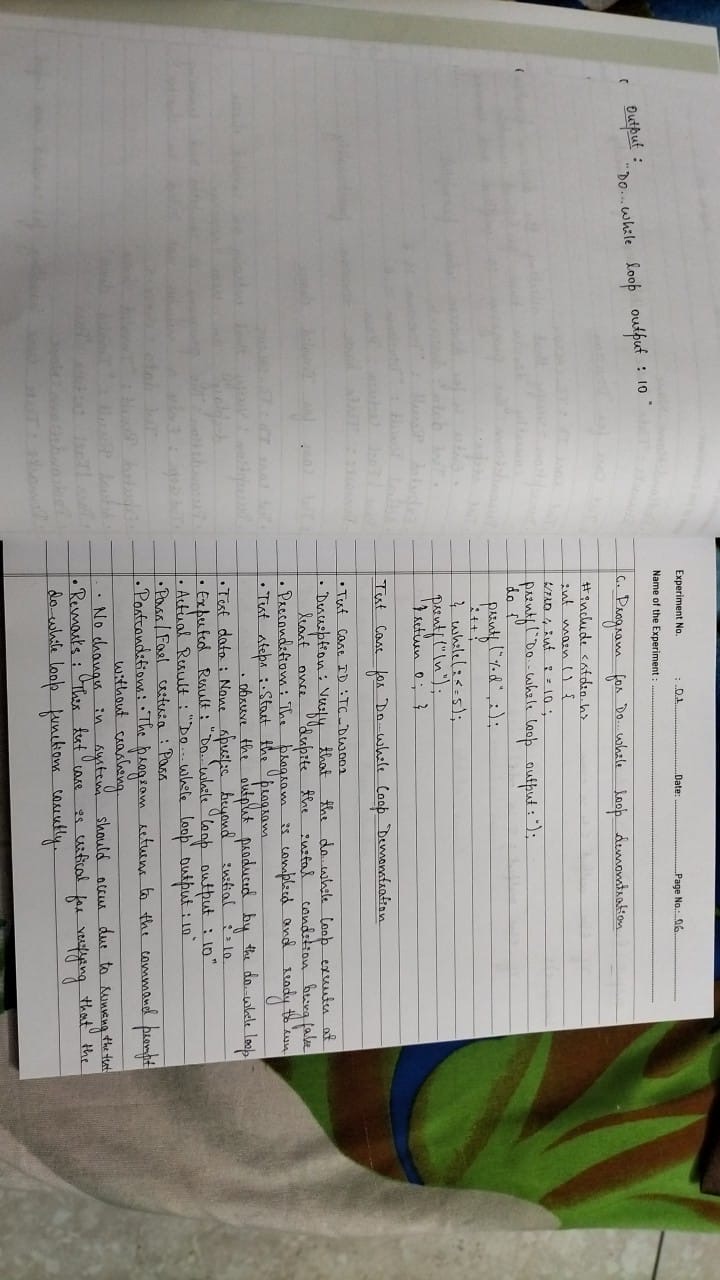 Output :
"Do...while loop output : 10"
Experiment No. : 01 Date: Page No.: 06
Name of the Experiment :
C. Program for Do..while loop demonstration
#include <stdio.h>
int main () {
int i = 10 ;
printf("Do...while loop output : ");
do {
printf("%d", i);
i++;
} while (i <= 5);
printf("\n");
return 0; }
Test Case for Do..while Loop Demonstration
• Test Case ID : TC_DW001
• Description : Verify that the do..while loop executes at
least once despite the initial condition being false
• Preconditions : The program is compiled and ready to run
• Test steps : • Start the program
• observe the output produced by the do..while loop
• Test data : None specific beyond initial i = 10
• Expected Result : "Do..while loop output : 10"
• Actual Result : "Do...while loop output : 10"
• Pass/Fail criteria : Pass
• Postconditions : • The program returns to the command prompt
without crashing
• No changes in system should occur due to running the test
• Remarks : This test case is critical for verifying that the
do-while loop functions correctly.